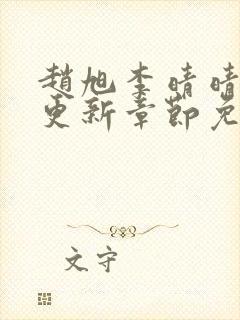 趙旭李晴晴
更新章節免
文守